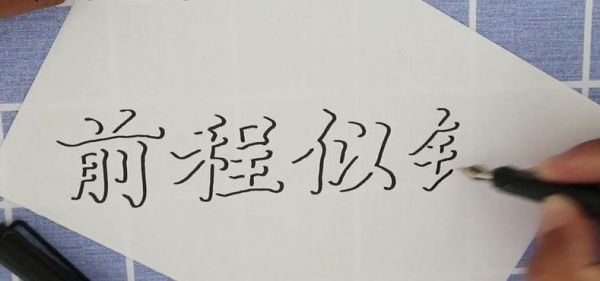 前程似